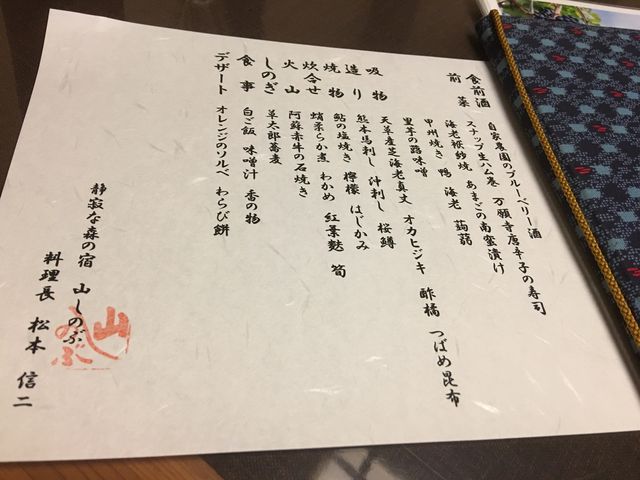 食前酒 自家農園のブルーベリー酒
前菜 スナップ生ハム巻 万願寺唐辛子の寿司
海老袱紗焼 あまごの南蛮漬け
甲州焼き 鴨 海老 蒟蒻
里芋の蕗味噌
吸物 天草産芝海老真丈 オカヒジキ 酢橘 つばめ昆布
造り 熊本馬刺し 沖刺し 桜鱒
焼物 鮎の塩焼き 檸檬 はじかみ
炊合せ 蛸柔らか煮 わかめ 紅葉麩 筍
火山 阿蘇赤牛の石焼き
しのぎ 草太郎蕎麦
食事 白ご飯 味噌汁 香の物
デザート オレンジのソルベ わらび餅
静寂な森の宿 山しのぶ
料理長 松本 信二
山しのぶ